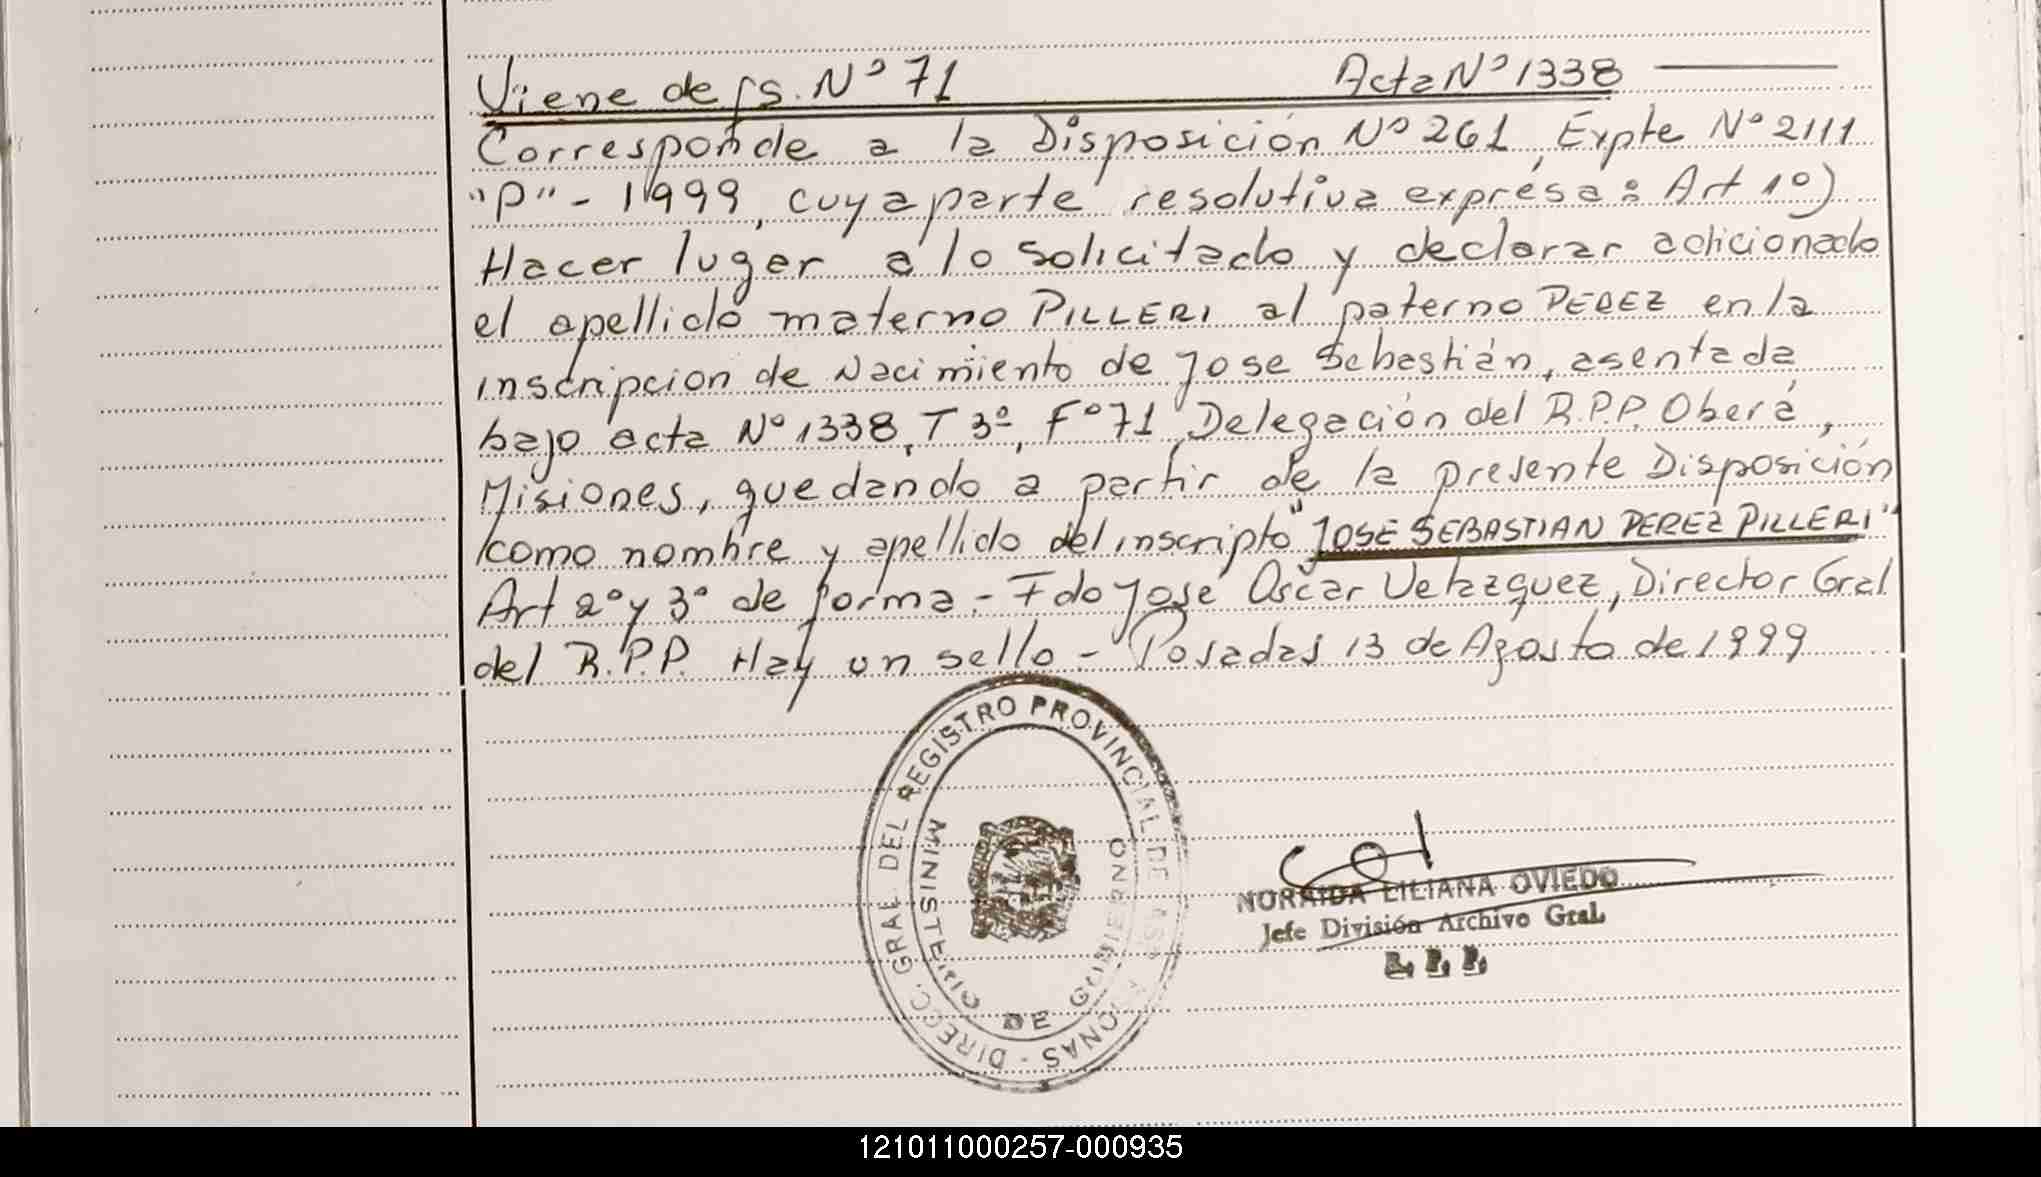 Viene de fs. Nº 71 Acta Nº 1338
Corresponde a la Disposición Nº 261, Expte Nº 2111
"P" - 1999, cuya parte resolutiva expresa: Art 1º)
Hacer lugar a lo solicitado y declarar adicionado
el apellido materno PILLERI al paterno PEREZ en la
inscripcion de Nacimiento de Jose Sebastián, asentada
bajo acta Nº 1338, T 3º, Fº 71, Delegación del R.P.P. Oberá,
Misiones, quedando a partir de la presente Disposición
como nombre y apellido del inscripto "JOSE SEBASTIAN PEREZ PILLERI"
Art 2º y 3º de forma.- Fdo Jose Oscar Velazquez, Director Gral
del R.P.P. Hay un sello - Posadas 13 de Agosto de 1999
DIRECC. GRAL DEL REGISTRO PROVINCIAL DE LAS PERSONAS -
MINISTERIO DE GOBIERNO
NORAIDA LILIANA OVIEDO
Jefe División Archivo Gral.
R. P. P.
121011000257-000935